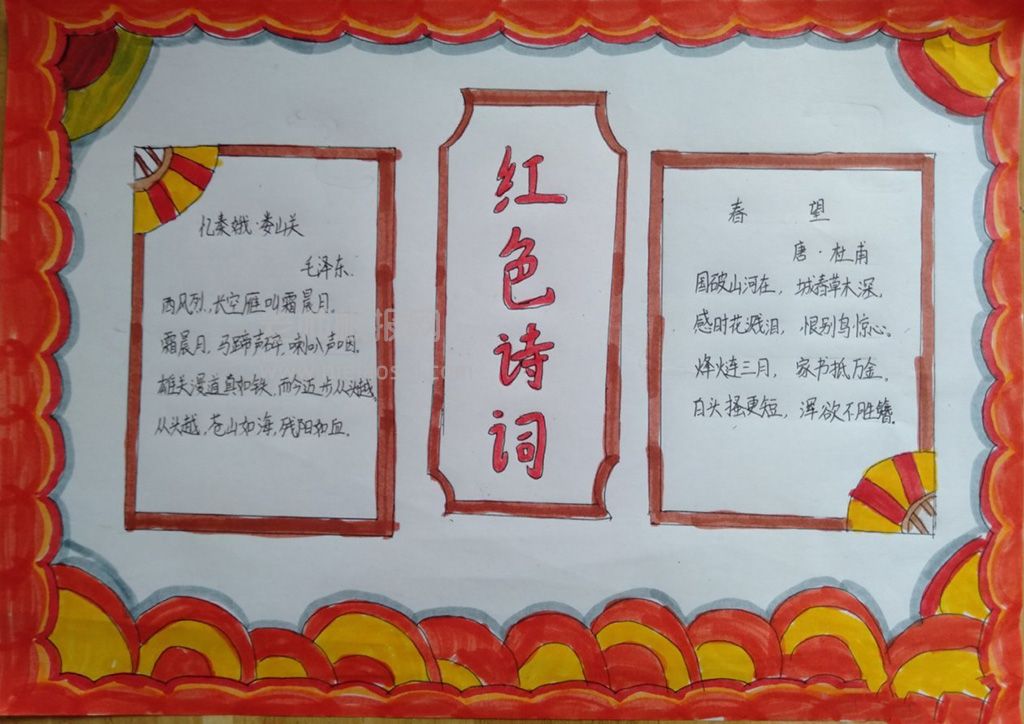 红色诗词
忆秦娥·娄山关
毛泽东
西风烈,长空雁叫霜晨月。
霜晨月,马蹄声碎,喇叭声咽。
雄关漫道真如铁,而今迈步从头越。
从头越,苍山如海,残阳如血。
春望
唐·杜甫
国破山河在,城春草木深。
感时花溅泪,恨别鸟惊心。
烽火连三月,家书抵万金。
白头搔更短,浑欲不胜簪。